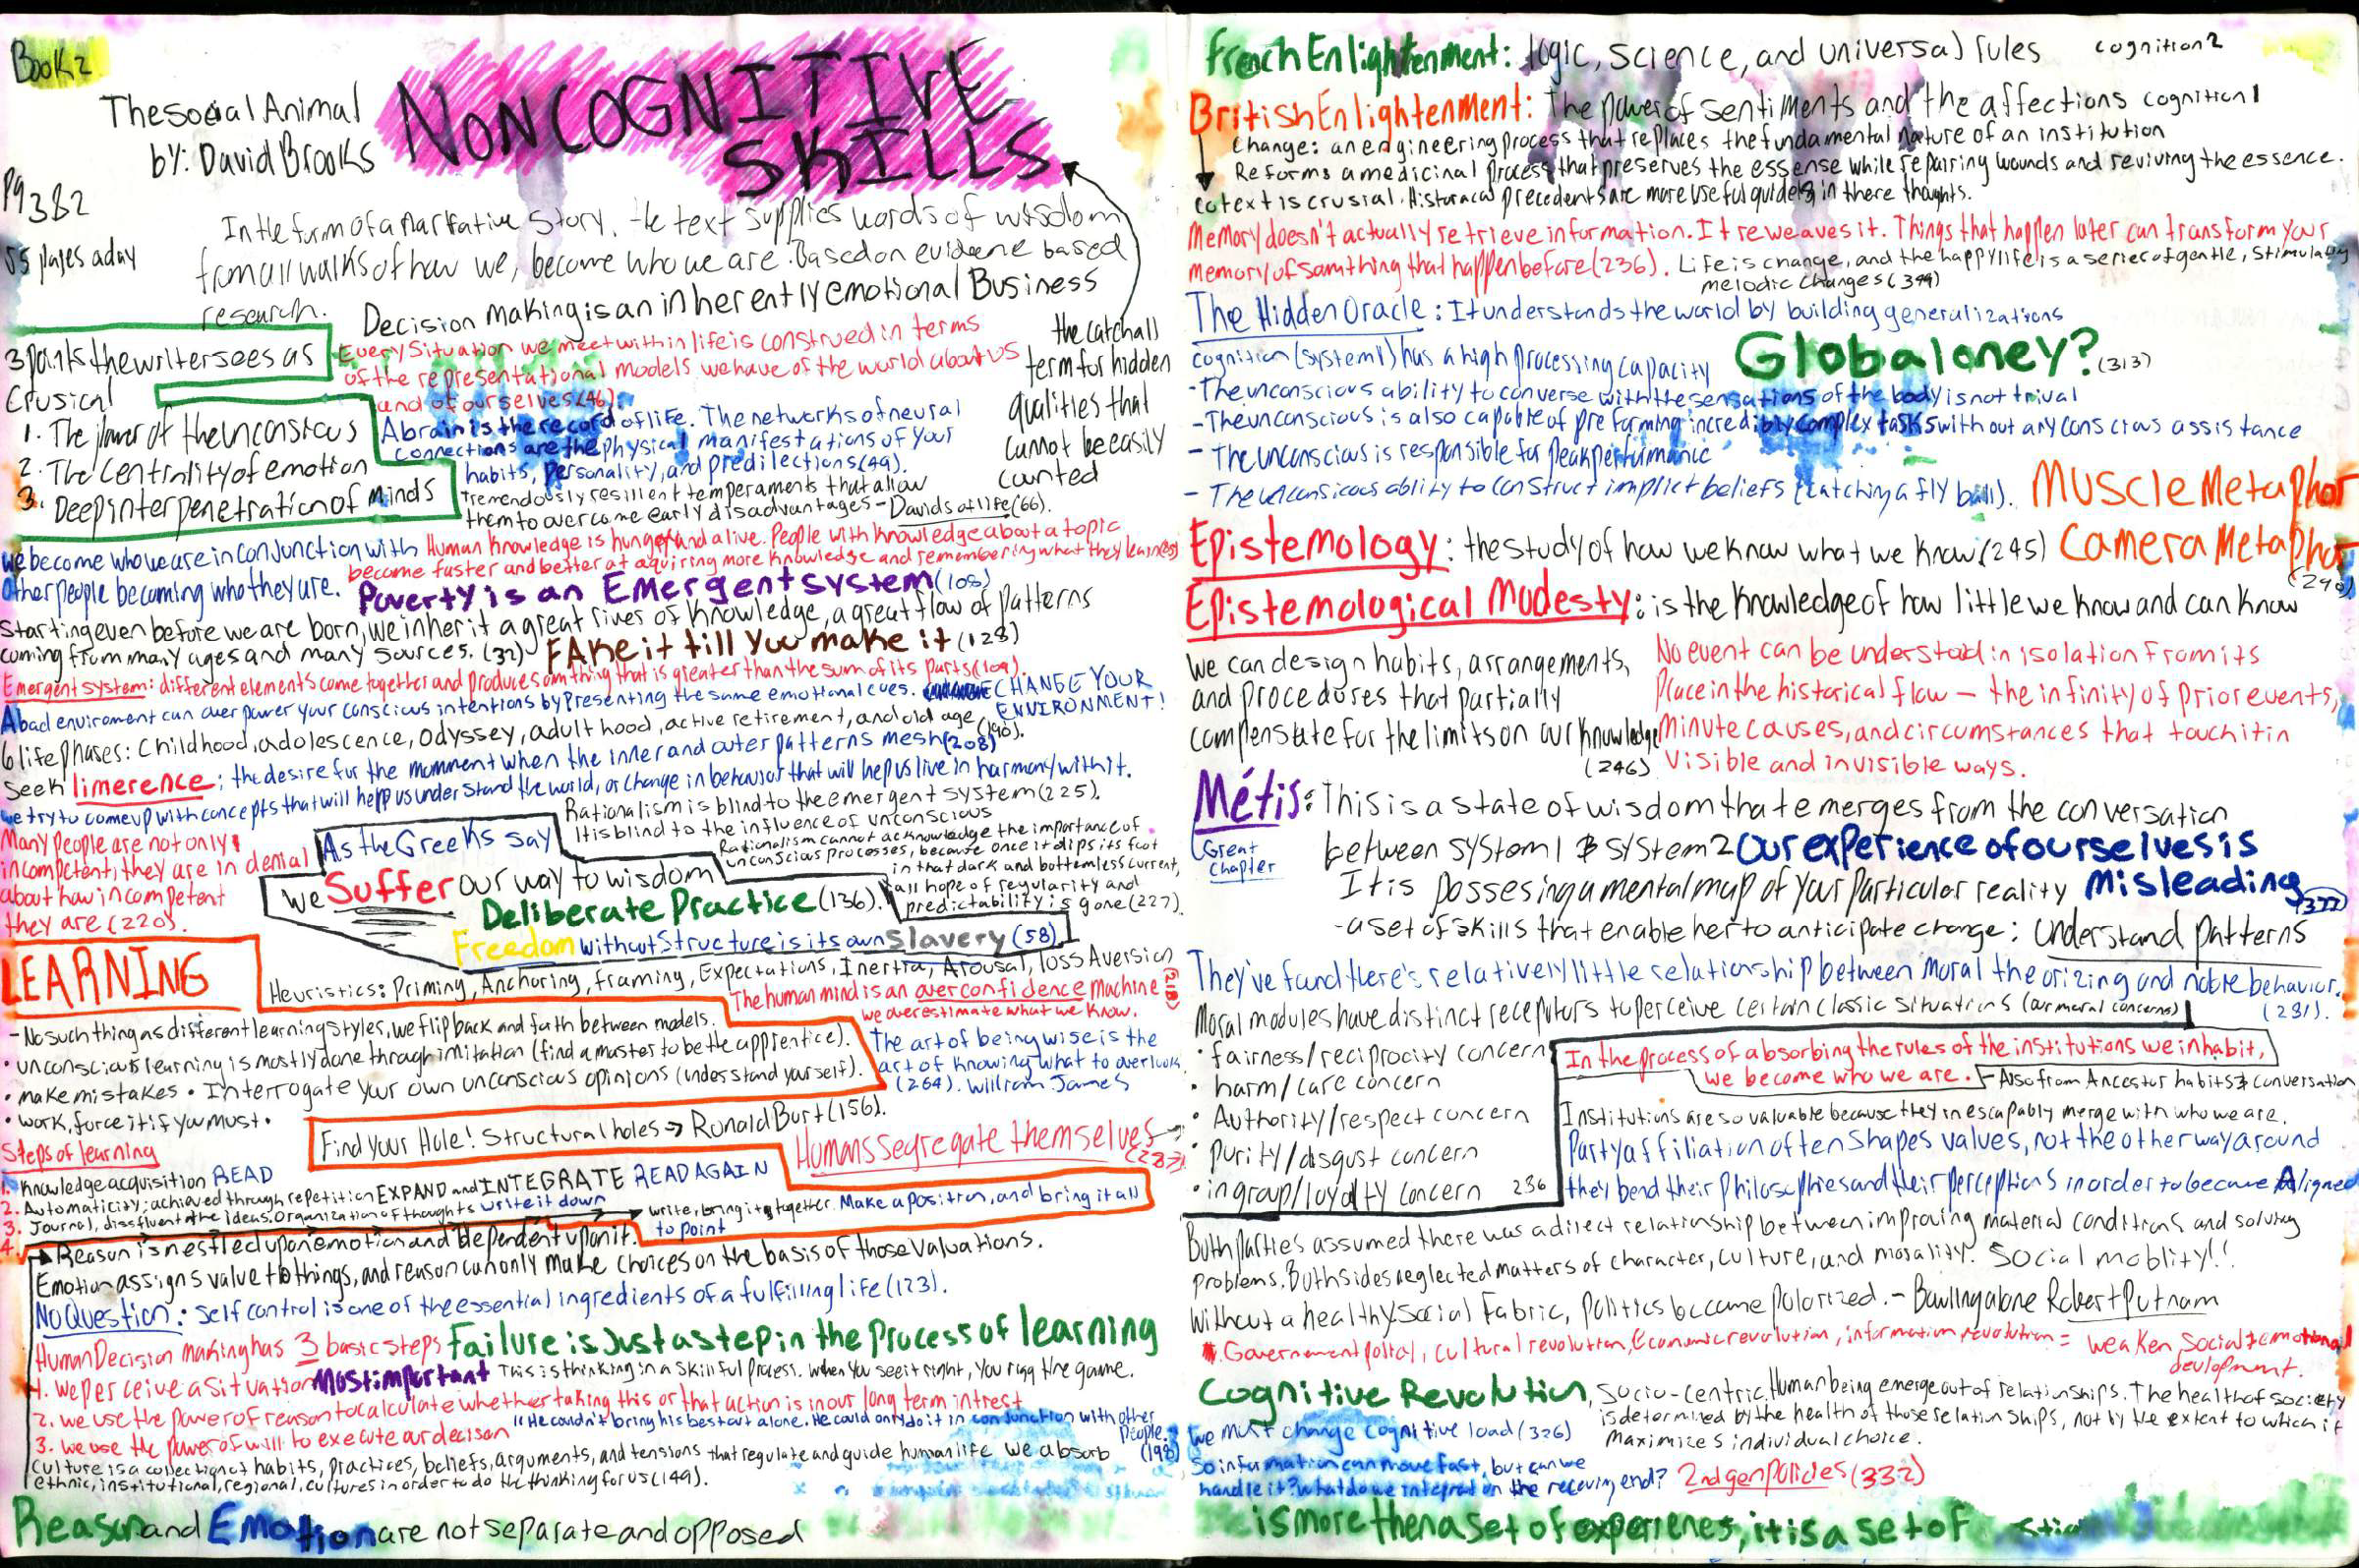 Book 2
The social Animal
by: David Brooks
NONCOGNITIVE
SKILLS
Pg 382
55 pages a day
In the form of a narrative story. the text supplies words of wisdom
from all walks of how we, become who we are. Based on evidence based
research.
Decision making is an inherently emotional Business
the catchall
term for hidden
qualities that
cannot be easily
counted
3 points the writer sees as
Crusical
1. The power of the unconscious
2. The Centrality of emotion
3. Deep inter penetration of minds
Every Situation we meet with in life is construed in terms
of the representational models we have of the world about us
and of ourselves (46).
A brain is the record of life. The networks of neural
connections are the physical manifestations of your
habits, personality, and predilections (49).
Tremendously resilient temperaments that allow
them to overcome early disadvantages - Davids of life (66).
we become who we are in conjunction with
other people becoming who they are.
Human knowledge is hungry and alive. People with knowledge about a topic
become faster and better at aquiring more knowledge and remembering what they learn
Poverty is an Emergent system (108)
Starting even before we are born, we inherit a great rives of knowledge, a great flow of patterns
coming from many ages and many sources. (32)
FAKE it till You make it (128)
Emergent system: different elements come together and produce somthing that is greater than the sum of its parts (109).
A bad enviroment can over power your conscious intentions by presenting the same emotional cues.
CHANGE YOUR
ENVIRONMENT!
6 life Phases: Childhood, adolescence, odyssey, adulthood, active retirement, and old age (190).
Seek limerence: the desire for the momment when the inner and outer patterns mesh (208)
we try to come up with concepts that will help us understand the world, or change in behavior that will help us live in harmony with it.
Many people are not only
incompetent; they are in denial
about how incompetent
they are (220).
Rationalism is blind to the emergent system (225).
It is blind to the influence of unconscious
Rationalism cannot acknowledge the importance of
unconscious processes, because once it dips its foot
in that dark and bottemless current,
all hope of regularity and
predictability is gone (227).
As the Greeks say
we Suffer our way to wisdom
Deliberate Practice (136).
Freedom without Structure is its own Slavery (58)
LEARNING
Heuristics: Priming, Anchoring, framing, Expectations, Inertia, Arousal, loss Aversion
The human mind is an overconfidence machine (218)
we overestimate what we know.
- No such thing as different learning styles, we flip back and forth between models.
• unconscious learning is mostly done through imitation (find a master to be the apprentice).
• make mistakes • Interrogate your own unconscious opinions (understand yourself).
• work, force it if you must.
The art of being wise is the
art of knowing what to overlook
(264). William James
Find your Hole! Structural holes → Ronald Burt (156).
Humans Segregate themselves
Steps of learning
1. knowledge acquisition READ
2. Automaticity; achieved through repetition EXPAND and INTEGRATE READ AGAIN
3. Journal, dissfluent the ideas. Organization of thoughts write it down
4.
write, bring it together. Make a position, and bring it all
to point
Reason is nestled upon emotion and dependent upon it.
Emotion assigns value to things, and reason can only make choices on the basis of those valuations.
No Question: Self control is one of the essential ingredients of a fulfilling life (123).
Human Decision making has 3 basic steps
Failure is Just a step in the Process of learning
1. we perceive a situation Most important This is thinking in a skillful process. when you see it right, you rigg the game.
2. we use the power of reason to calculate whether taking this or that action is in our long term intrest
3. we use the power of will to execute our decison
"He couldn't bring his best out alone. He could only do it in conjunction with other
people." (198)
Culture is a collection of habits, practices, beliefs, arguments, and tensions that regulate and guide human life we absorb
ethnic, institutional, regional, cultures in order to do the thinking for us (149).
Reason and Emotion are not separate and opposed
French Enlightenment: logic, science, and universal rules cognition 2
British Enlightenment: The power of sentiments and the affections cognition 1
Change: an engineering process that replaces the fundamental nature of an institution
Reforms a medicinal process that preserves the essense while repairing wounds and reviving the essence.
cotext is crusial. Historacal precedents are more useful guides in there thoughts.
Memory doesn't actually retrieve information. It reweaves it. Things that happen later can transform your
memory of somthing that happen before (236).
Life is change, and the happy life is a series of gentle, stimulating
melodic changes (344)
The Hidden Oracle: It understands the world by building generalizations
cognition (system 1) has a high processing capacity
Globaloney? (313)
- The unconscious ability to converse with the sensations of the body is not trival
- The unconscious is also capable of preforming incredibly complex tasks with out any conscious assistance
- The unconscious is responsible for peak performance
- The unconsicous ablity to construct implict beliefs (catching a fly ball).
Muscle Metaphor
Camera Metaphor
Epistemology: the study of how we know what we know (245)
(248)
Epistemological Modesty: is the knowledge of how little we know and can know
we can design habits, arrangements,
and procedures that partially
compenstate for the limits on our knowledge
(246)
No event can be understood in isolation from its
place in the historical flow — the infinity of prior events,
minute causes, and circumstances that touch it in
visible and invisible ways.
Métis: This is a state of wisdom that emerges from the conversation
between system 1 & system 2
Great
Chapter
Our experience of ourselves is
Misleading
It is possesing a mental map of your particular reality
- a set of skills that enable her to anticipate change: understand patterns
They've found there's relatively little relationship between moral theorizing and noble behavior.
(281).
Moral modules have distinct receptors to perceive certain classic situations (our moral concerns)
• fairness/reciprocity concern
• harm/care concern
• Authority/respect concern
• purity/disgust concern
• in group/loyalty concern 286
In the process of absorbing the rules of the institutions we inhabit,
we become who we are. Also from Ancestor habits & conversation
Institutions are so valuable because they inescapably merge with who we are.
Party affiliation often shapes values, not the other way around
they bend their philosophies and their perceptions in order to become Aligned
Both parties assumed there was a direct relationship between improving material conditions and solving
problems. Both sides neglected matters of character, culture, and morality. Social moblity!!
Without a healthy Social Fabric, politics became polarized. - Bowling alone Robert Putnam
, cultural revolution, Economic revolution, information revolution = weaken social & emotional
devlopment.
Cognitive Revolution, Socio-centric. Human being emerge out of relationships. The health of society
is determined by the health of those relationships, not by the extent to which it
maximizes individual choice.
we must change cognitive load (326)
So information can move fast, but can we
handle it? what do we integrat on the receving end?
2nd gen policies (332)
is more then a set of experienes, it is a set of